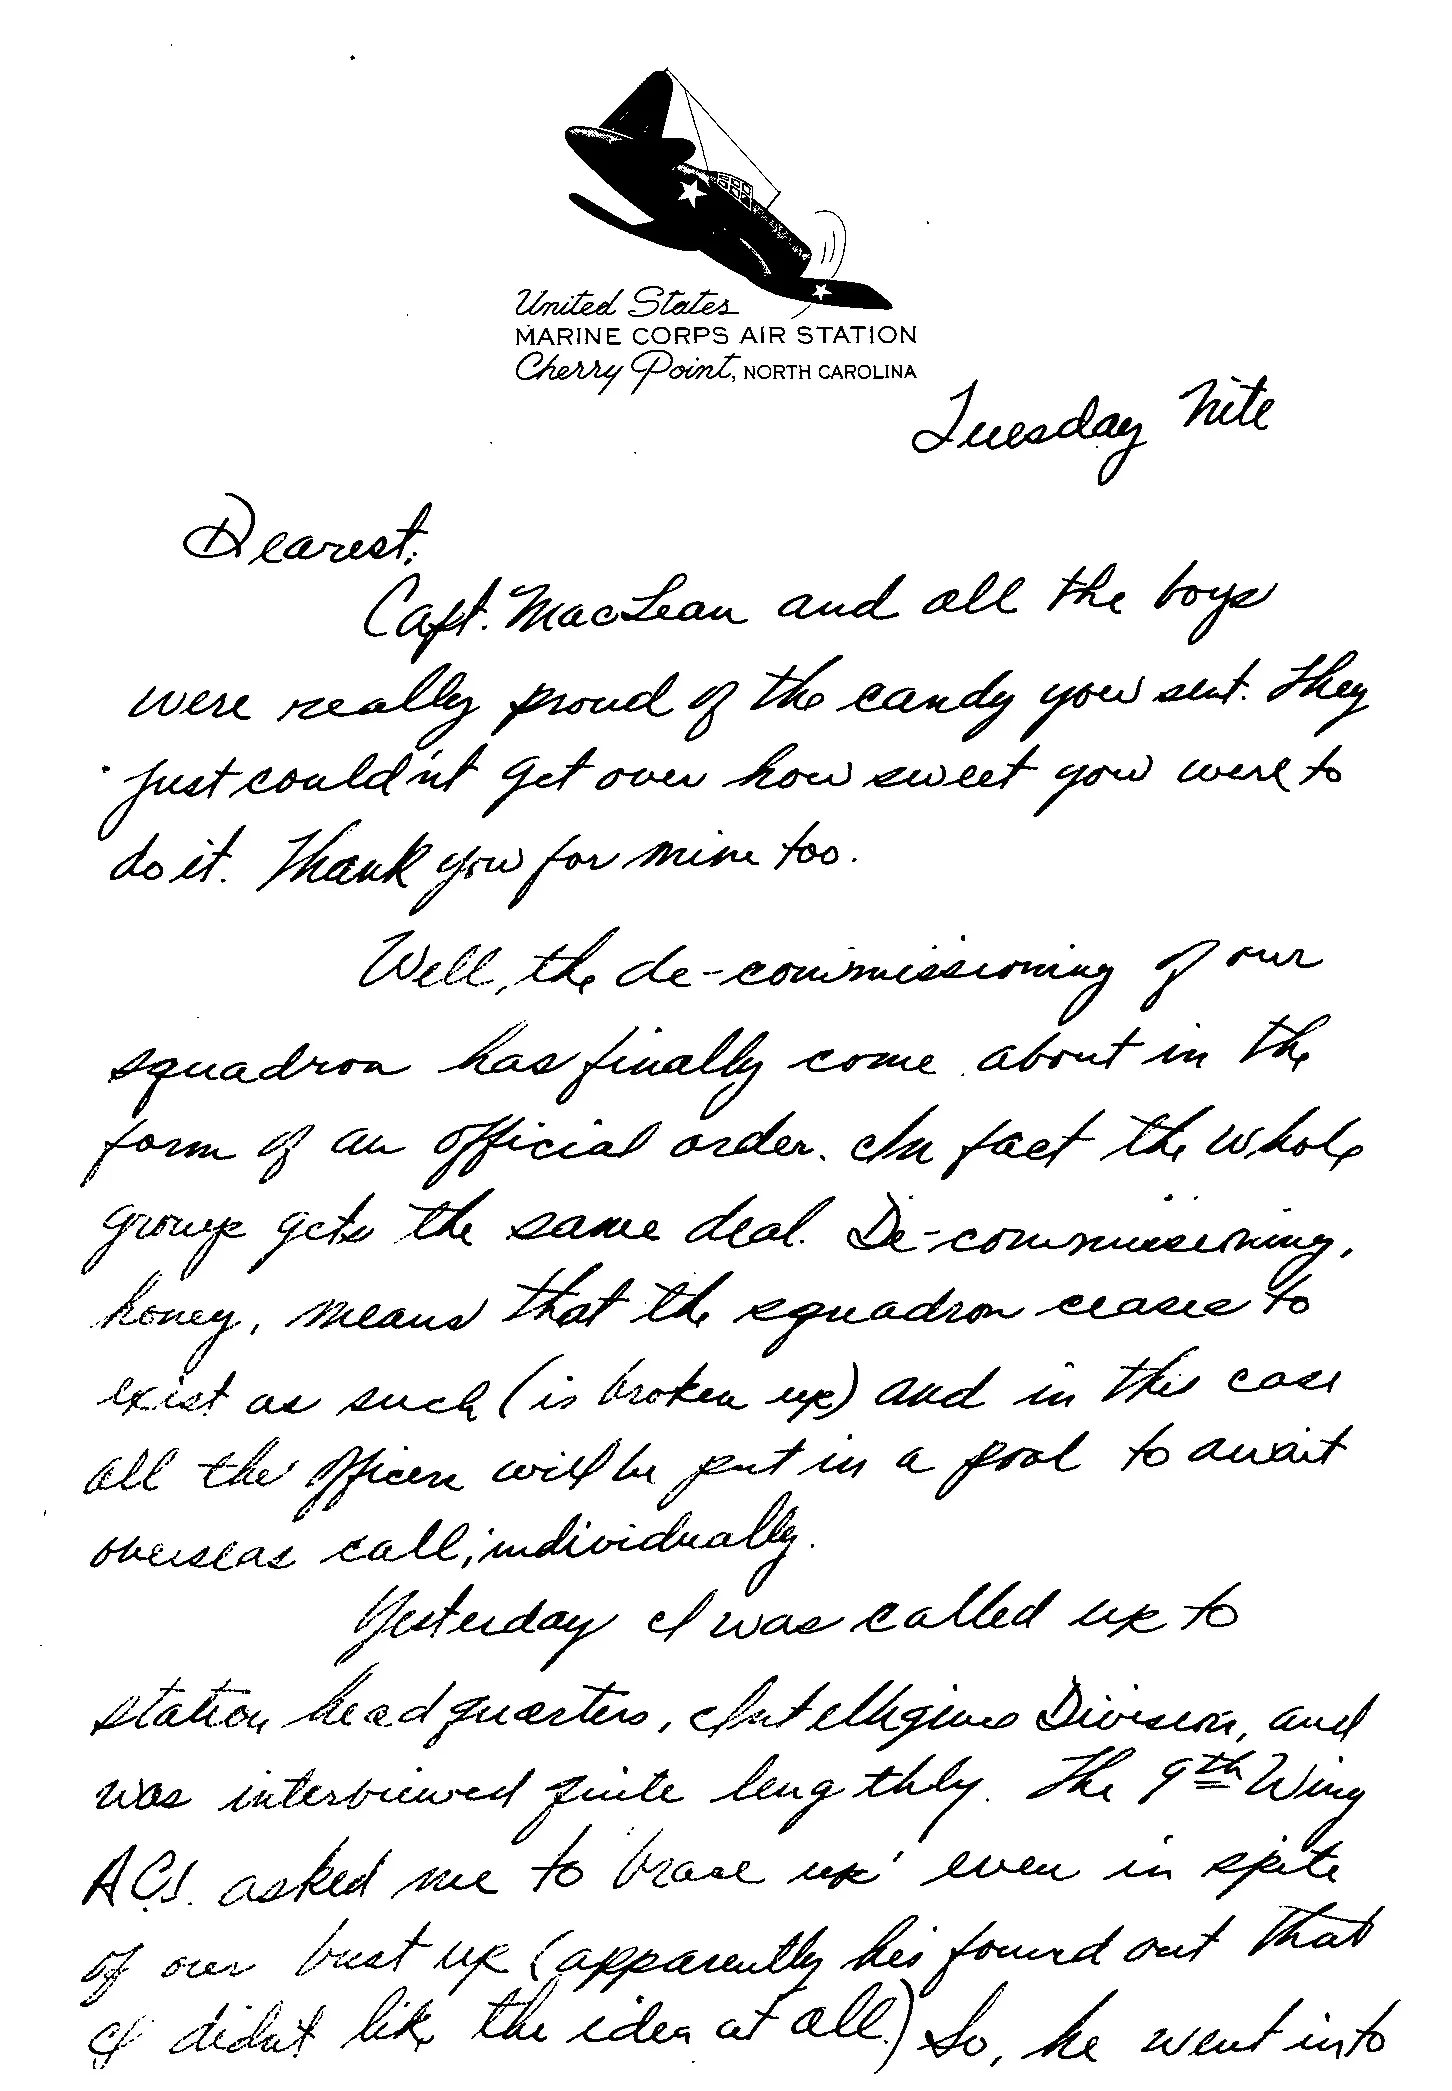 United States
MARINE CORPS AIR STATION
Cherry Point, NORTH CAROLINA
Tuesday Nite
Dearest;
Capt. MacLean and all the boys
were really proud of the candy you sent. They
just couldn't get over how sweet you were to
do it. Thank you for mine too.
Well, the de-commissioning of our
squadron has finally come about in the
form of an official order. In fact the whole
group gets the same deal. De-commissioning,
honey, means that the squadron ceases to
exist as such (is broken up) and in this case
all the officers will be put in a pool to await
overseas call, individually.
Yesterday I was called up to
station headquarters, Intelligence Division, and
was interviewed quite lengthly. The 9th Wing
A.C.I. asked me to 'brace up' even in spite
of our bust up (apparently he's found out that
I didn't like the idea at all.) So, he went into